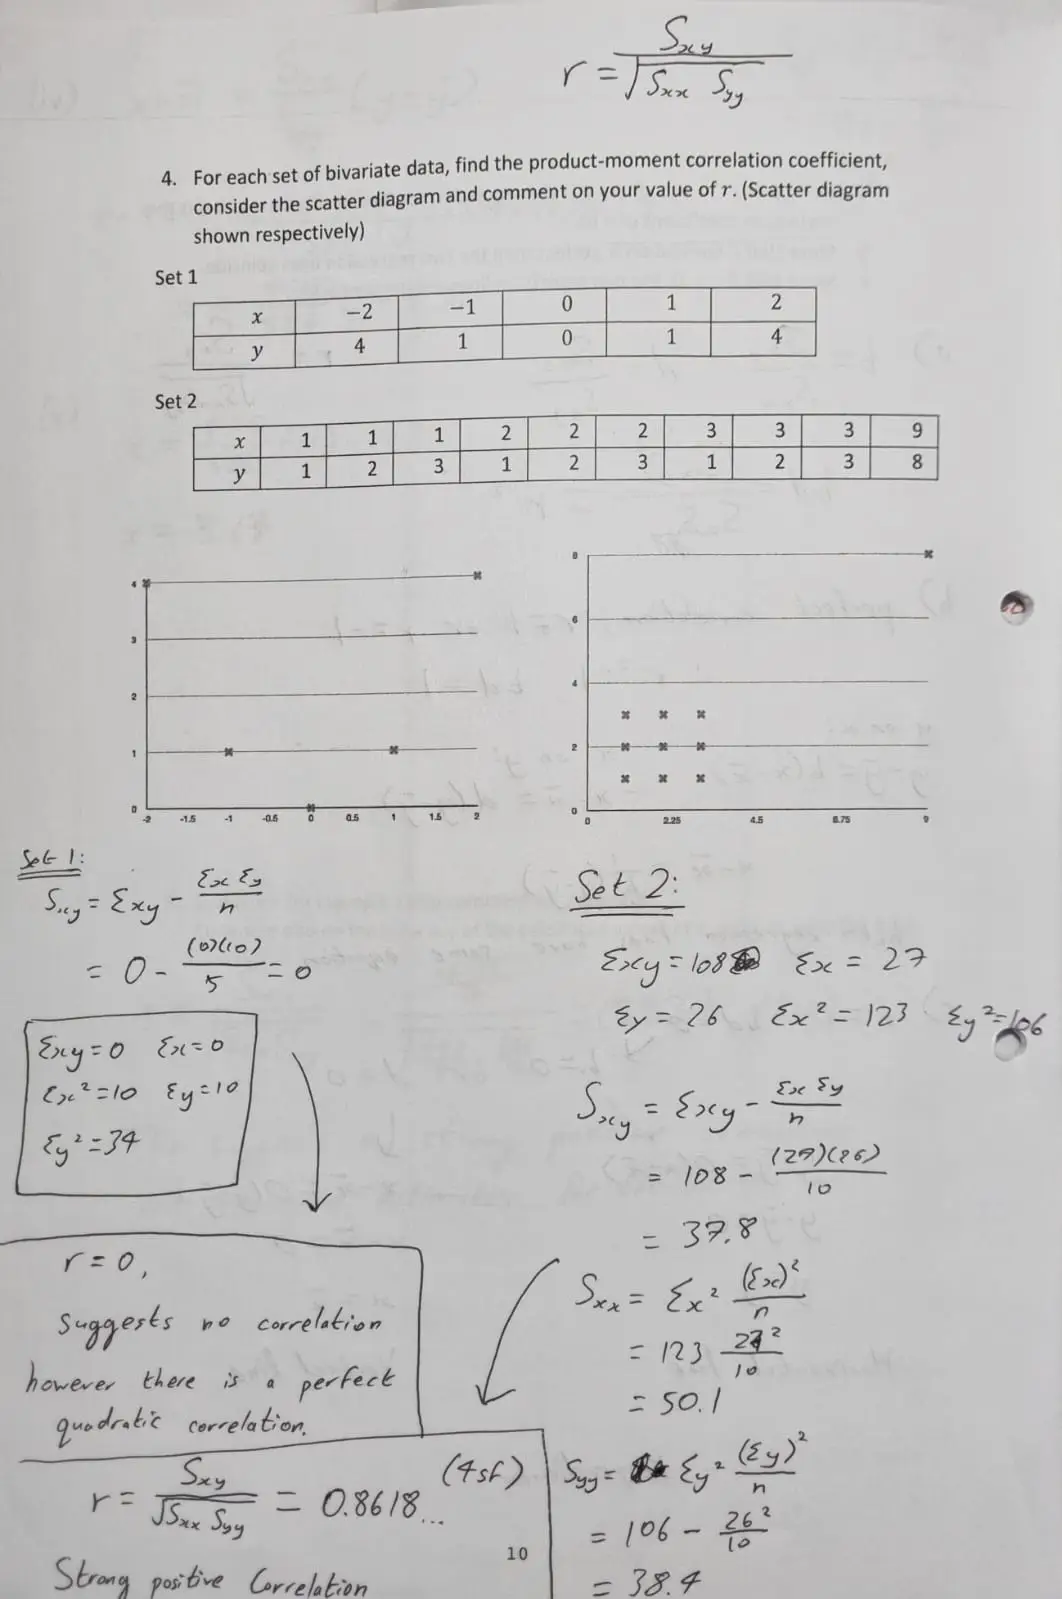 r = Sxy / √Sxx Syy
4. For each set of bivariate data, find the product-moment correlation coefficient,
consider the scatter diagram and comment on your value of r. (Scatter diagram
shown respectively)
Set 1
x −2 −1 0 1 2
y 4 1 0 1 4
Set 2
x 1 1 1 2 2 2 3 3 3 9
y 1 2 3 1 2 3 1 2 3 8
4
3
2
1
0
-2 -1.5 -1 -0.5 0 0.5 1 1.5 2
8
6
4
2
0
0 2.25 4.5 6.75 9
Set 1:
Sxy = Σxy − Σx Σy / n
= 0 − (0)(10) / 5 = 0
Σxy = 0 Σx = 0
Σx² = 10 Σy = 10
Σy² = 34
r = 0,
Suggests no correlation
however there is a perfect
quadratic correlation.
r = Sxy / √Sxx Syy = 0.8618... (4sf)
Strong positive Correlation
Set 2:
Σxy = 108 Σx = 27
Σy = 26 Σx² = 123 Σy² = 106
Sxy = Σxy − Σx Σy / n
= 108 − (27)(26) / 10
= 37.8
Sxx = Σx² (Σx)² / n
= 123 27² / 10
= 50.1
Syy = Σy² (Σy)² / n
= 106 − 26² / 10
= 38.4
10